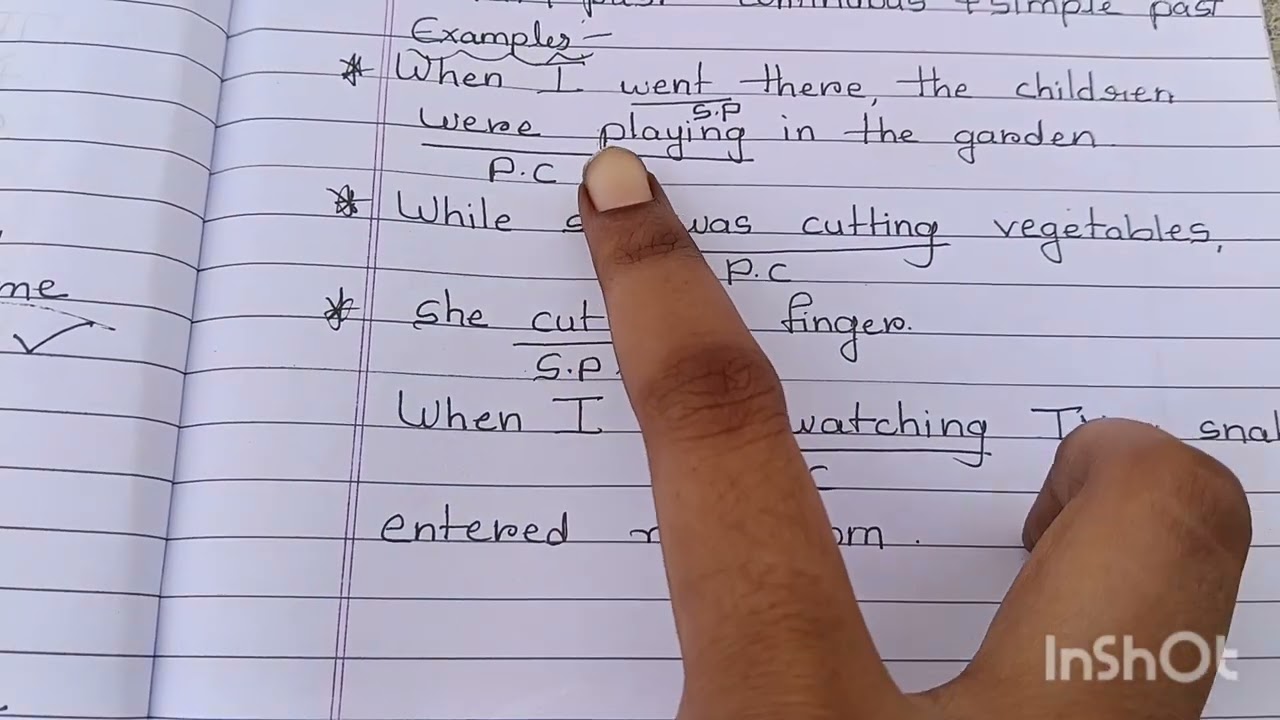 continuous + simple past
Examples:-
* When I went there, the children
S.P
were playing in the garden
P.C
* While was cutting vegetables,
P.C
me
* She cut finger.
S.P.
When I watching
entered
InShOt